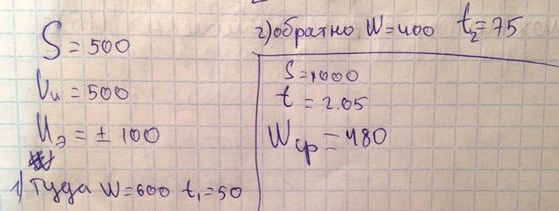 S = 500
Vи = 500
Uэ = ± 100
1) туда W=600 t₁=50
2) обратно W=400 t₂=75
S=1000
t = 2.05
Wср = 480